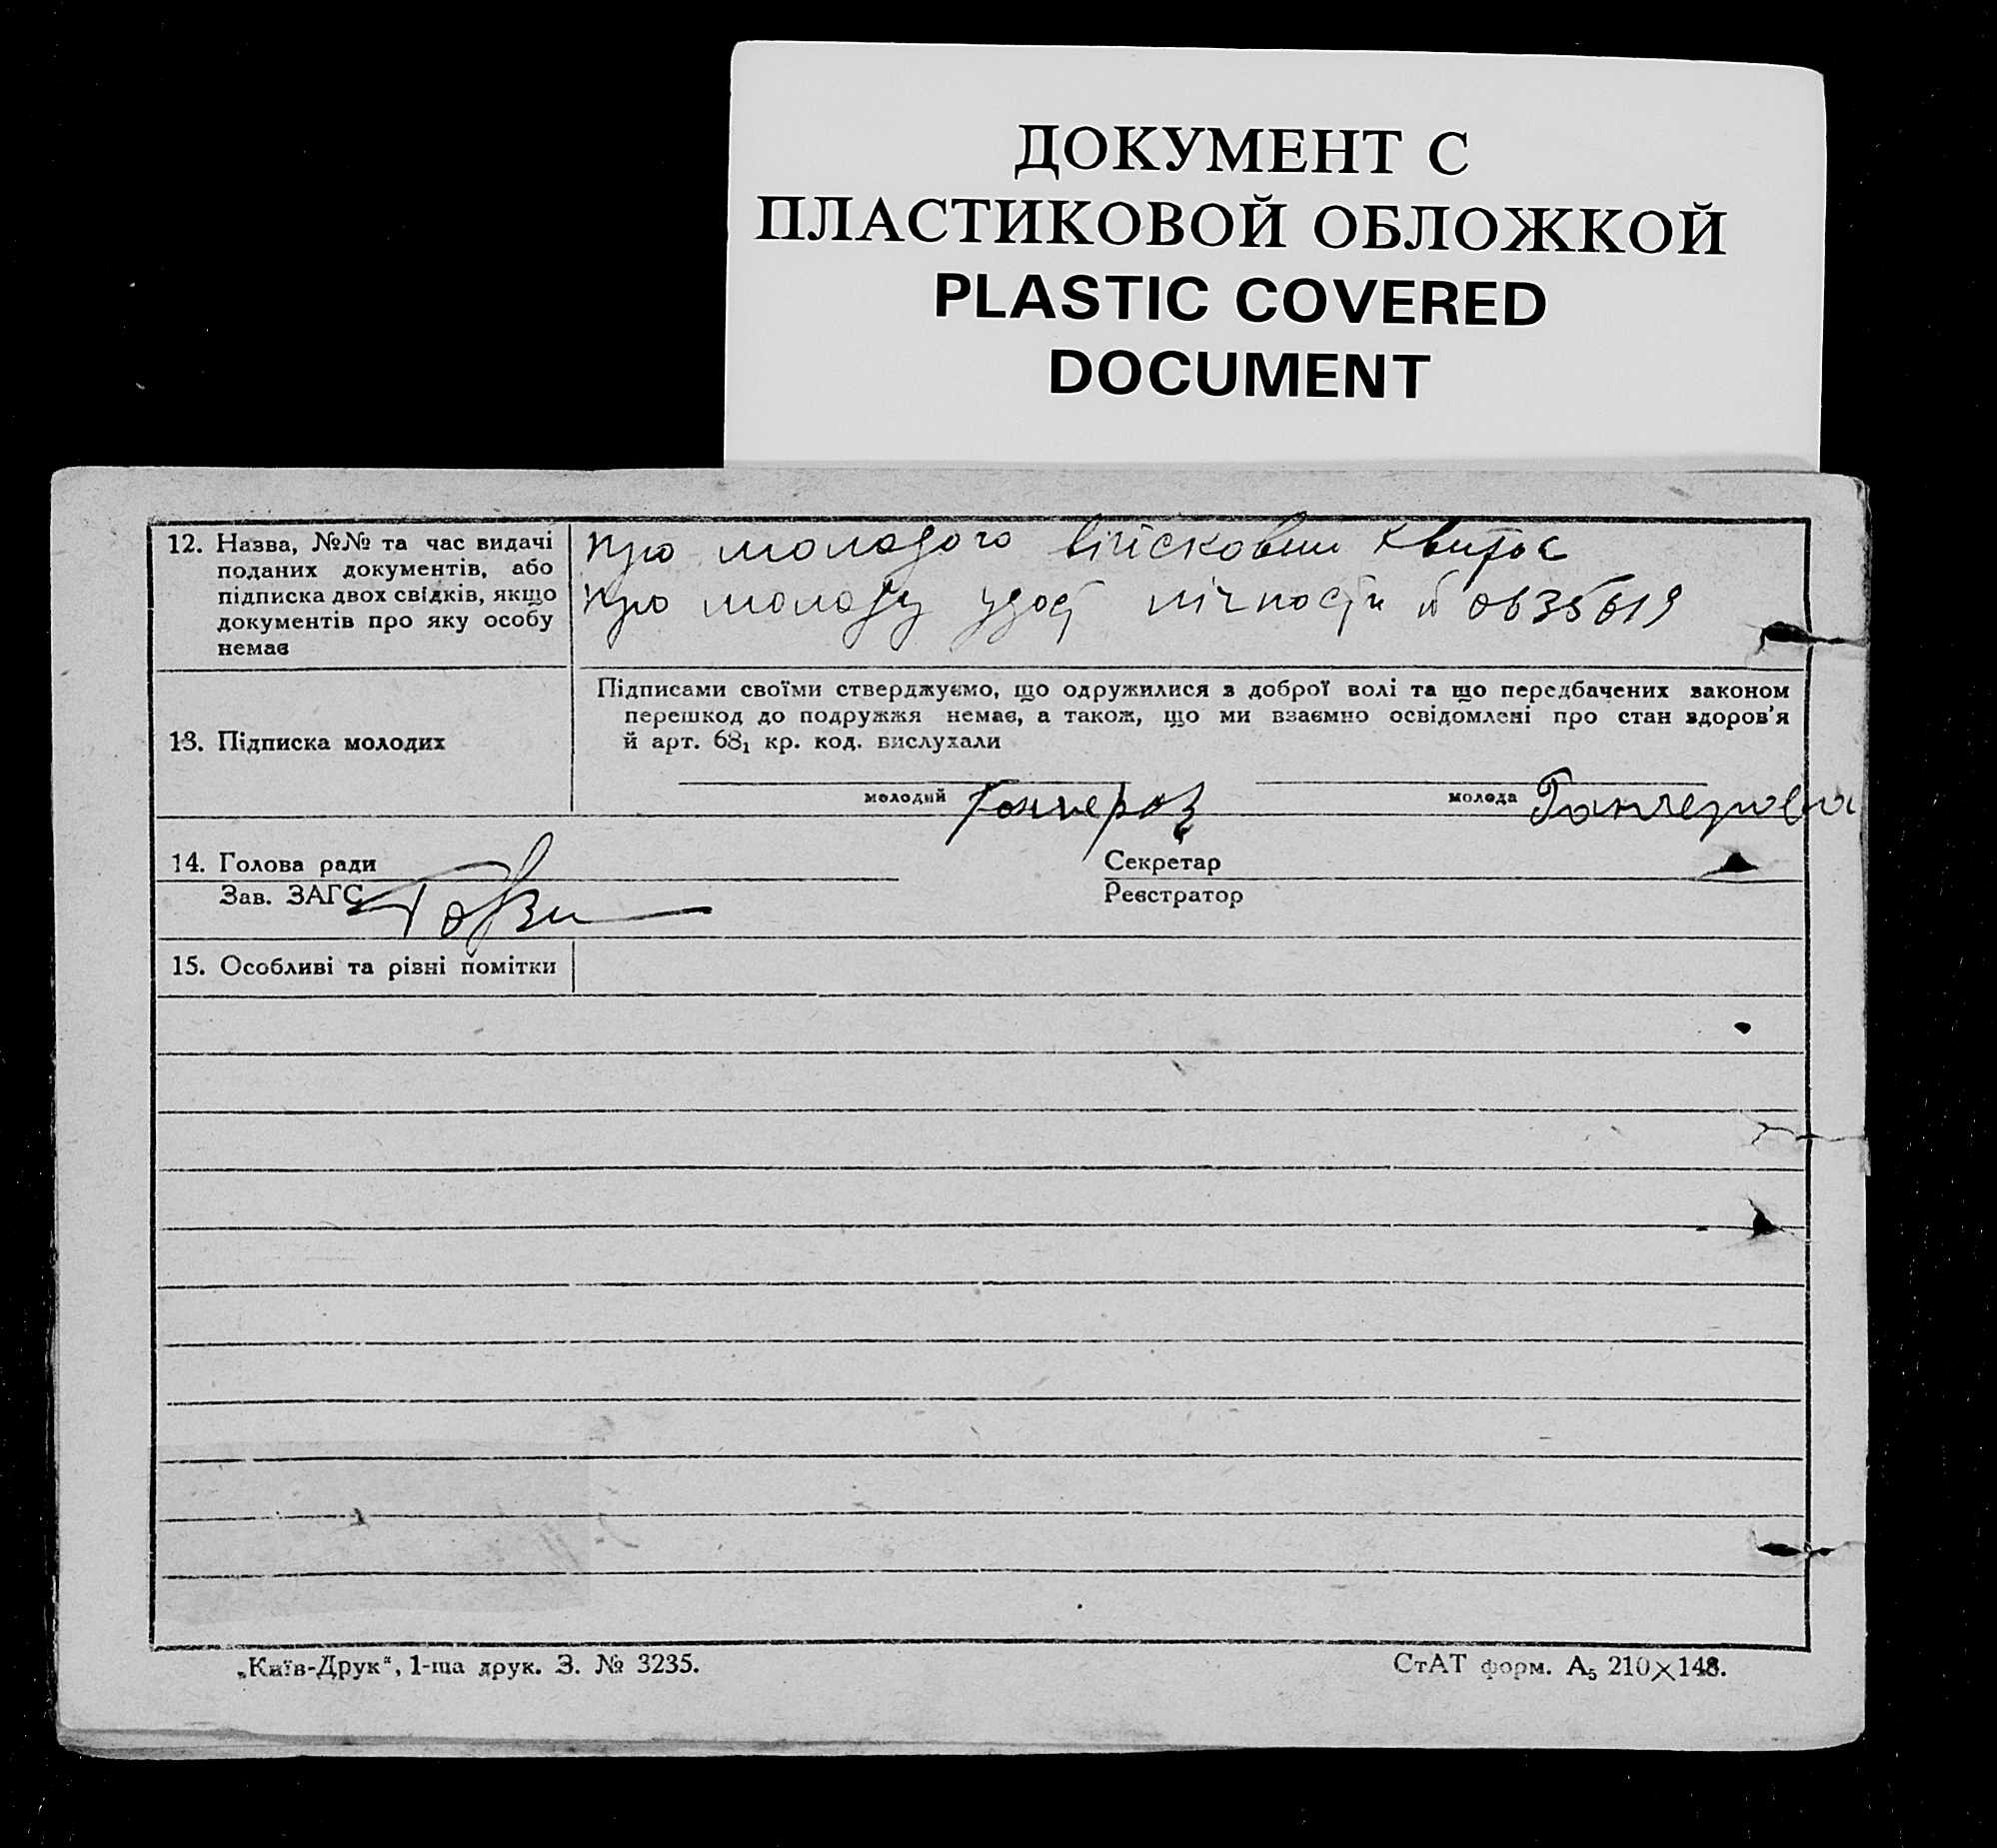 ДОКУМЕНТ С
ПЛАСТИКОВОЙ ОБЛОЖКОЙ
PLASTIC COVERED
DOCUMENT
12. Назва, №№ та час видачі
поданих документів, або
підписка двох свідків, якщо
документів про яку особу
немає
про молодого військовий квиток
про молоду удост лічности № 0635619
13. Підписка молодих
Підписами своїми стверджуємо, що одружилися з доброї волі та що передбачених законом
перешкод до подружжя немає, а також, що ми взаємно освідомлені про стан здоров'я
й арт. 68₁ кр. код. вислухали
молодий
молода
14. Голова ради
Секретар
Зав. ЗАГС
Реєстратор
15. Особливі та різні помітки
„Київ-Друк“, 1-ша друк. З. № 3235.
СтАТ форм. А₅ 210×148.